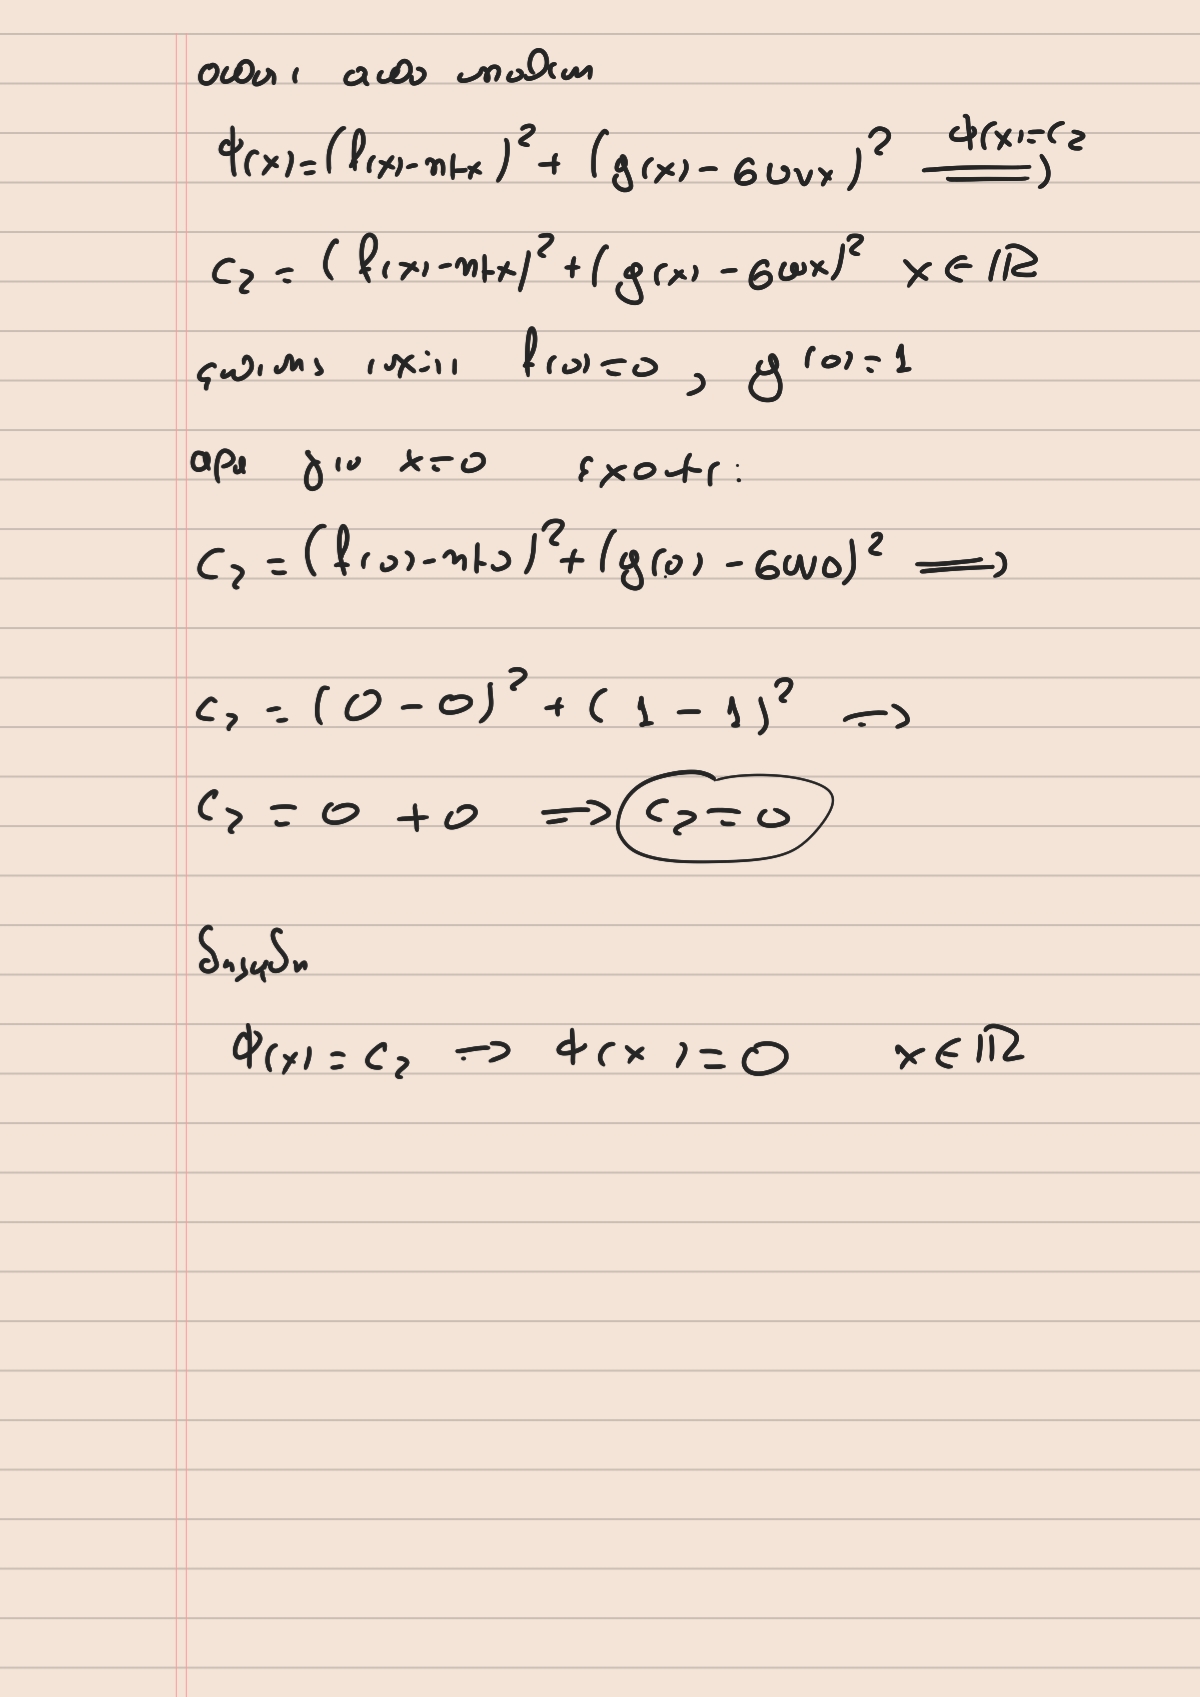 φ(x)=(f(x)-ημx)²+(g(x)-συνx)² φ(x)=c₂ ⟹
c₂ = (f(x)-ημx)²+(g(x)-συνx)² x∈ℝ
ισχύει f(0)=0, g(0)=1
άρα για x=0 έχουμε:
c₂ = (f(0)-ημ0)²+(g(0)-συν0)² ⟹
c₂ = (0-0)²+(1-1)² ⟹
c₂ = 0+0 ⟹ c₂=0
δηλαδη
φ(x)=c₂ → φ(x)=0 x∈ℝ